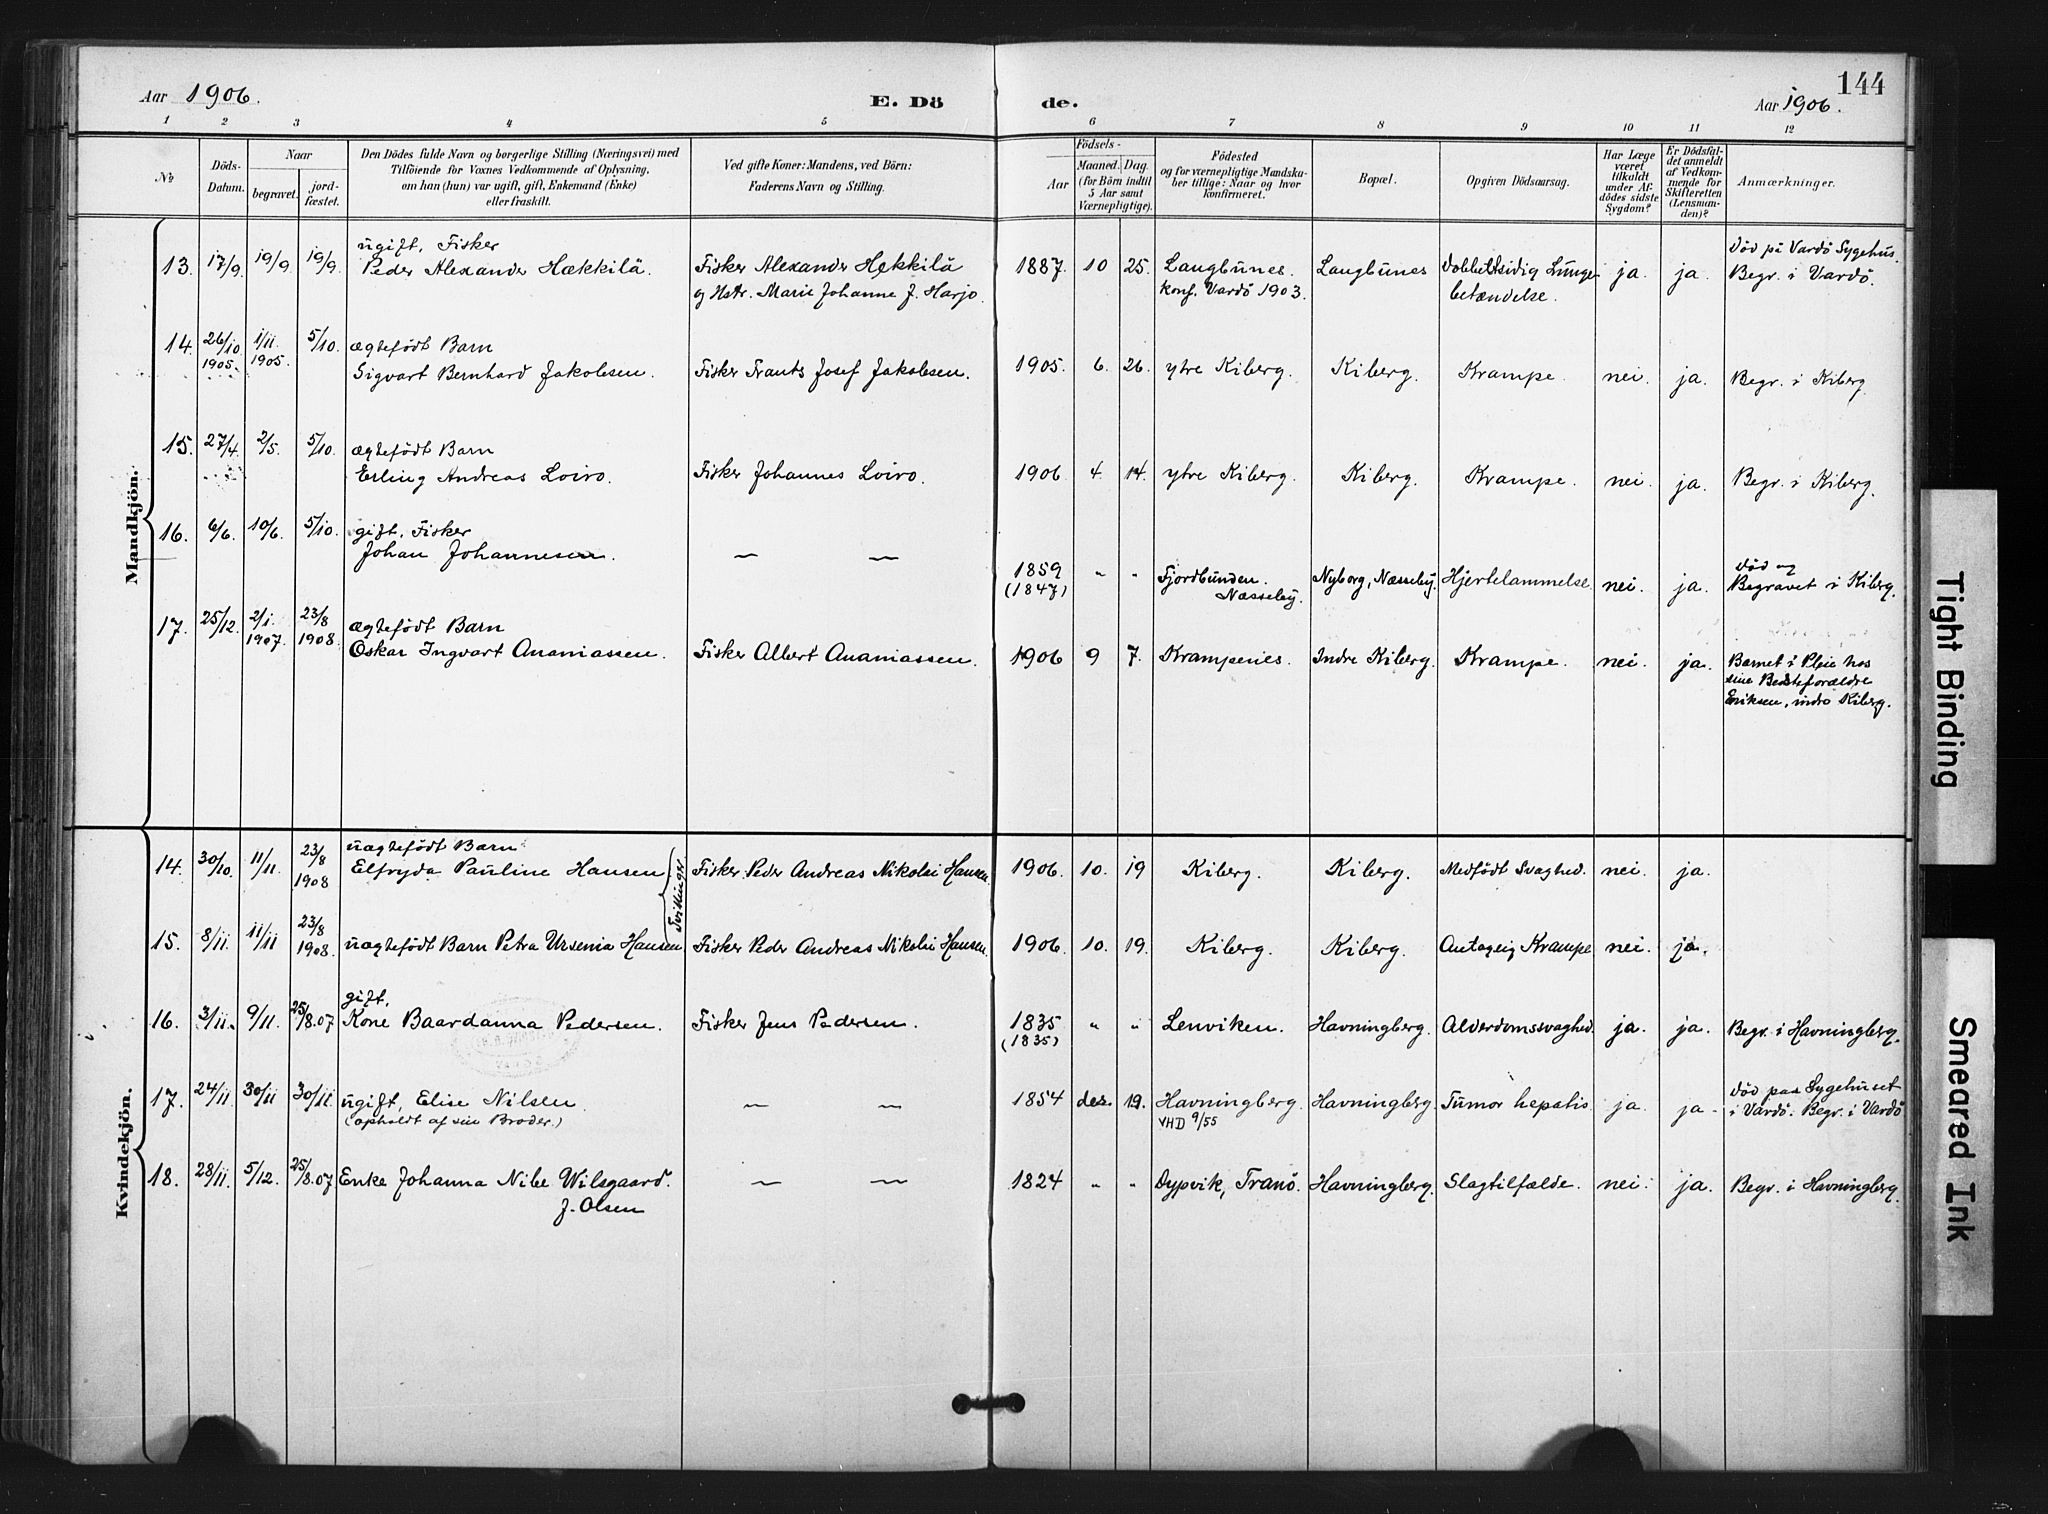 144
Aar 1906.
E. Dö
de.
Aar 1906.
1 2 3 4 5 6 7 8 9 10 11 12
No
Döds-Datum.
Naar
begravet.
jord-fæstet.
Den Dödes fulde Navn og borgerlige Stilling (Næringsvei) med
Tilföiende for Voxnes Vedkommende af Oplysning,
om han (hun) var ugift, gift, Enkemand (Enke)
eller fraskilt.
Ved gifte Koner: Mandens, ved Börn:
Faderens Navn og Stilling.
Födsels-
Aar
Maaned. Dag.
(for Börn indtil
5 Aar samt
Værnepligtige).
Födested
og for værnepligtige Mandska-
ber tillige: Naar og hvor
konfirmeret.
Bopæl.
Opgiven Dödsaarsag.
Har Læge
været
tilkaldt
under Af-
dödes sidste
Sygdom?
Er Dödsfal-
det anmeldt
af Vedkom-
mende for
Skifteretten
(Lensman-
den)?
Anmærkninger.
Mandkjön.
13. 17/9. 19/9. 19/9. ugift, Fisker
Peder Alexander Hækkilä. Fisker Alexander Hekkilä
og Hstr. Marie Johanne J. Harjo. 1887. 10 25. Langbunes.
konf. Vardö 1903. Langbunes Dobbeltsidig Lunge-
betændelse. ja ja. Död på Vardö Sygehus.
Begr. i Vardö.
14. 26/10 1905. 1/11 1905. 5/10. ægtefödt Barn
Sigvart Bernhard Jakobsen. Fisker Frants Josef Jakobsen. 1905. 6. 26. ytre Kiberg. Kiberg. Krampe. nei. ja. Begr. i Kiberg.
15. 27/4. 2/5. 5/10. ægtefödt Barn
Erling Andreas Loiro. Fisker Johannes Loiro. 1906. 4. 14. ytre Kiberg. Kiberg. Krampe. nei. ja. Begr. i Kiberg.
16. 6/6. 10/6. 5/10. gift, Fisker
Johan Johannesen. — — 1859
(1847) " " Fjordbunden.
Næsseby. Nyborg, Næsseby. Hjertelammelse. nei. ja. Död og
Begravet i Kiberg.
17. 25/12. 2/1. 1907. 23/8 1908. ægtefödt Barn
Oskar Ingvart Ananiassen. Fisker Albert Ananiassen. 1906 9 7. Krampenes. Indre Kiberg. Krampe. nei. ja. Barnet i Pleie hos
sine Bedsteforældre
Eriksen, indre Kiberg.
Kvindekjön.
14. 30/10. 11/11. 23/8 1908 uægtefödt Barn
Elfryda Pauline Hansen Fisker Peder Andreas Nikolai Hansen. 1906. 10. 19 Kiberg. Kiberg. Medfödt Svaghed. nei. ja.
Tvillinger
15. 8/11. 11/11 23/8 1908. uægtefödt Barn Petra Ursenia Hansen Fisker Peder Andreas Nikolai Hansen. 1906. 10. 19. Kiberg. Kiberg. Antagelig Krampe nei. ja.
16. 3/11. 9/11. 25/8.07 gift,
Kone Baardanna Pedersen. Fisker Jens Pedersen. 1835
(1835) " " Lenviken. Havningberg. Alderdomssvaghed. ja. ja. Begr. i Havningberg.
17. 24/11. 30/11 30/11. ugift, Elise Nilsen.
(opholdt af sin Broder.) — — 1854 des. 19. Havningberg.
VHD 9/55 Havningberg Tumor hepatis ja. ja. Död paa Sygehuset
i Vardö. Begr. i Vardö
18. 28/11. 5/12. 25/8.07 Enke Johanna Nibe Wilsgaard.
J. Olsen — — 1824 " " Dypvik, Tranö. Havningberg. Slagtilfælde. nei. ja. Begr. i Havningberg.
Tight Binding
Smeared Ink